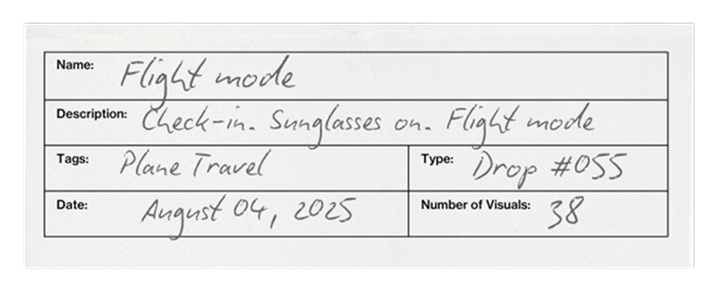 Name: Flight mode
Description: Check-in. Sunglasses on. Flight mode
Tags: Plane Travel
Type: Drop #055
Date: August 04, 2025
Number of Visuals: 38